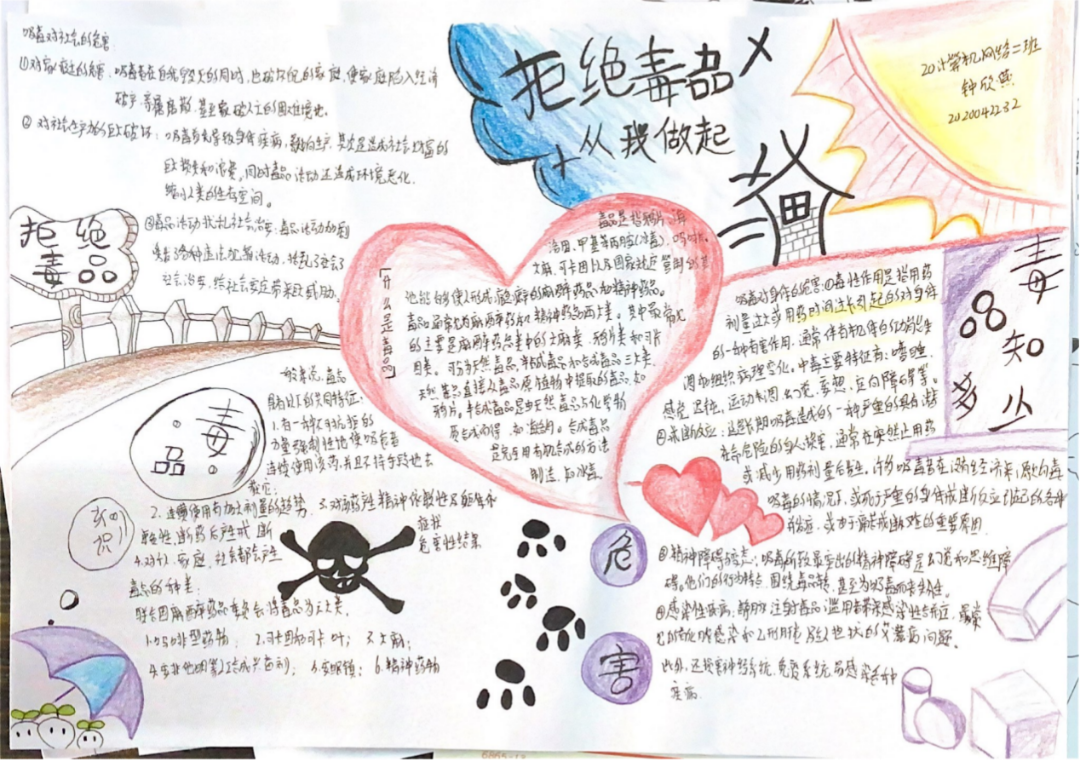 拒绝毒品
从我做起
20计算机网络二班
钟欣
2020042232
吸毒对社会的危害
①对家庭的危害：吸毒者在自我毁灭的同时，也破坏自己的家庭，使家庭陷入经济
破产、亲属离散、甚至家破人亡的困难境地。
②对社会生产力的巨大破坏：吸毒首先导致身体疾病，影响生产，其次是造成社会财富的
巨大损失和浪费，同时毒品活动还造成环境恶化，
缩小人类的生存空间。
③毒品活动扰乱社会治安：毒品活动加剧
诱发了各种违法犯罪活动，扰乱了社会
社会治安，给社会安定带来巨大威胁。
拒绝
毒品
[什么是毒品]
毒品是指鸦片、海
洛因、甲基苯丙胺(冰毒)、吗啡、
大麻、可卡因以及国家规定管制的其
他能够使人形成瘾癖的麻醉药品和精神药品。
毒品通常分为麻醉药品和精神药品两大类。其中最常见
的主要是麻醉药品类中的大麻类、鸦片类和可卡
因类。可分为天然毒品、半合成毒品和合成毒品三大类。
天然毒品直接从毒品原植物中提取的毒品，如
鸦片。半合成毒品是由天然毒品与化学物
质合成而得，如海洛因。合成毒品
是完全用有机合成的方法
制造，如冰毒。
毒品
一般来说，毒品
具有以下的共同特征：
1.有一种不可抗拒的
力量强制性地使吸食者
连续使用该药，并且不择手段地去
获它；
2.连续使用有加大剂量的趋势
3.对该药产生精神依赖性及
性，断药后产生戒断
症状
4.对个人、家庭、社会都会产生
危害性结果
毒品的种类：
联合国麻醉药品委员会将毒品为六大类。
1.吗啡型药物；2.可卡因和可卡叶；3.大麻；
4.安非他明等人工合成兴奋剂；5.安眠镇；6.精神药物
毒品知多少
吸毒对身体的危害：①毒性作用是指用药
剂量过大或用药时间过长引起的对身体
的一种有害作用，通常伴有机体的功能失
调和组织病理变化。中毒主要特征有：嗜睡、
感觉迟钝、运动失调、幻觉、妄想、定向障碍等。
②戒断反应：是长期吸毒造成的一种严重的具有潜
在命危险的身心损害，通常在突然止用药
或减少用药剂量后发生。许多吸毒者在没有经济来源购毒
吸毒的情况下，或死于严重的身体戒断反应引起的各种
并发症，或由于
戒断难的重要原因
危害
③精神障碍变态：吸毒所致最突出的精神障碍是幻觉和思维障
碍。他们的行为特点围绕毒品转，甚至为吸毒而丧失人性。
④感染性疾病：静脉注射毒品，滥用者带来感染性合并症，最常
见的有化脓感染和乙型肝炎，及
的艾滋病问题。
此外，还损害神经系统、免疫系统，易感染各种
疾病